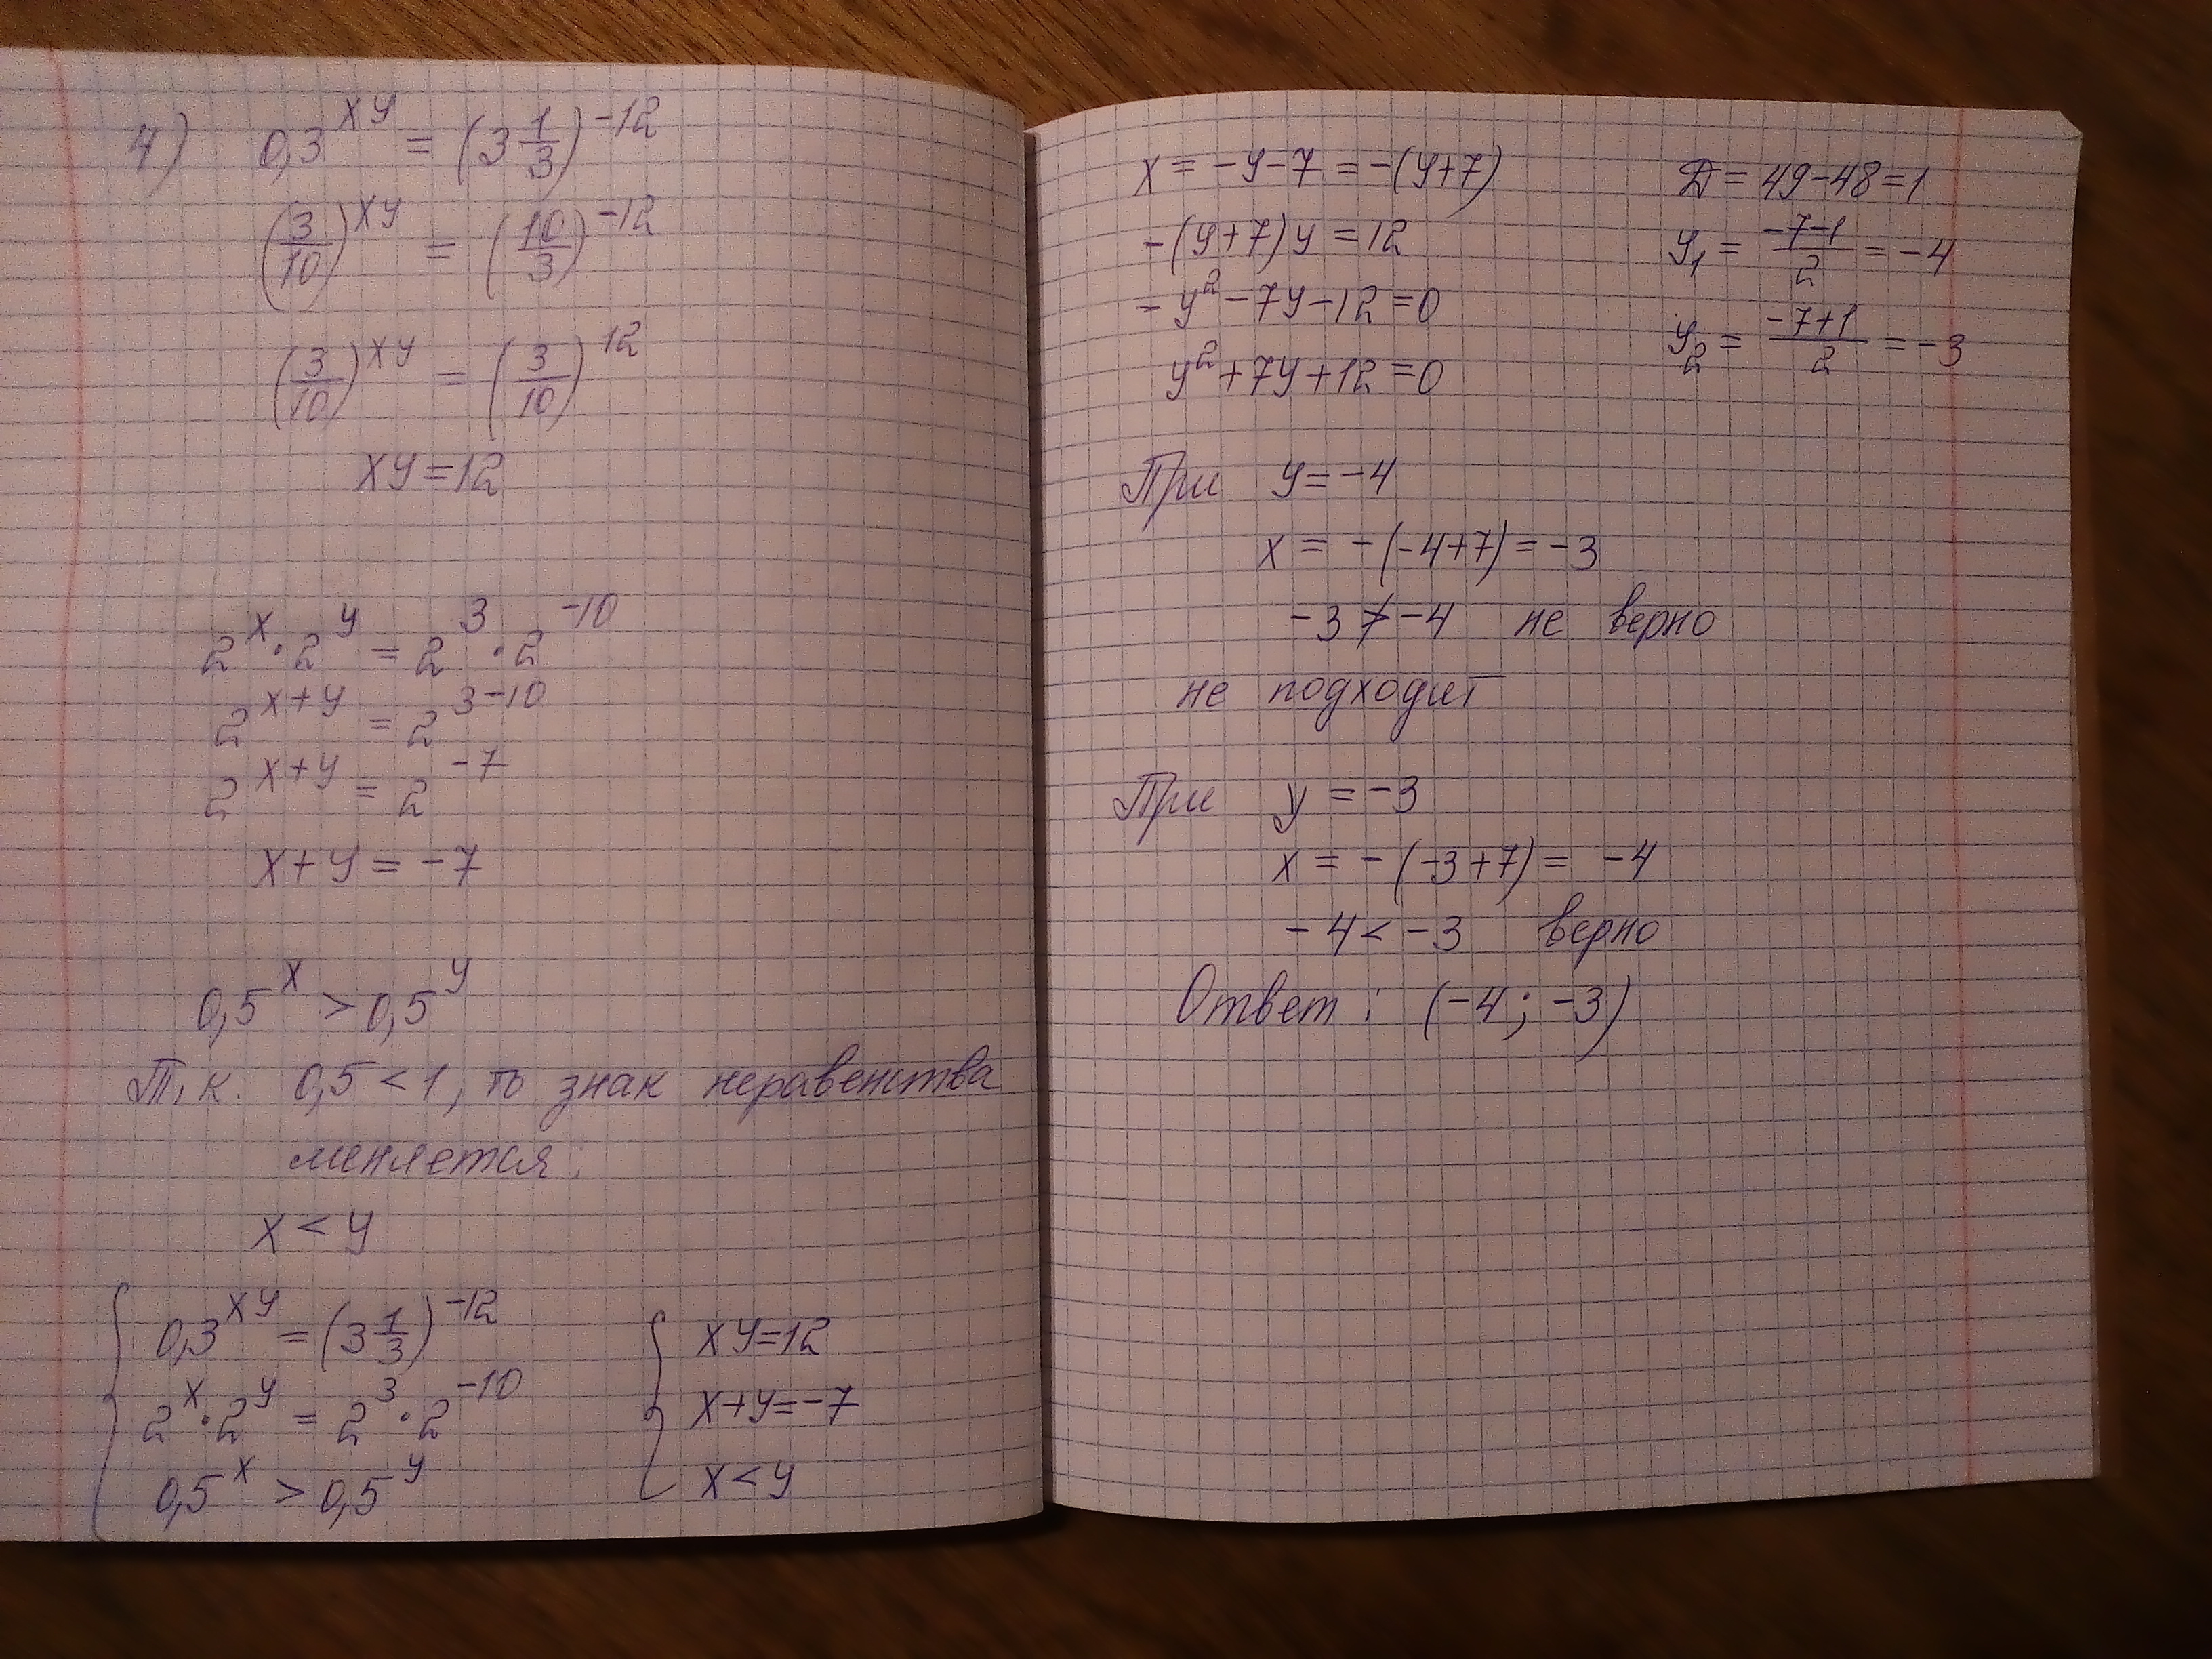 4) 0,3^{xy} = (3 1/3)^{-12}
(3/10)^{xy} = (10/3)^{-12}
(3/10)^{xy} = (3/10)^{12}
xy=12
2^x · 2^y = 2^3 · 2^{-10}
2^{x+y} = 2^{3-10}
2^{x+y} = 2^{-7}
x+y = -7
0,5^x > 0,5^y
Т.к. 0,5 < 1, то знак неравенства
меняется:
x < y
{ 0,3^{xy} = (3 1/3)^{-12}
2^x · 2^y = 2^3 · 2^{-10}
0,5^x > 0,5^y
{ xy=12
x+y=-7
x < y
x = -y-7 = -(y+7)
-(y+7)y = 12
-y² -7y-12 =0
y² +7y+12 =0
Д = 49-48=1
y₁ = (-7-1)/2 = -4
y₂ = (-7+1)/2 = -3
При y=-4
x = -(-4+7) = -3
-3 ≯ -4 не верно
не подходит
При y = -3
x = -(-3+7) = -4
-4 < -3 верно
Ответ: (-4; -3)